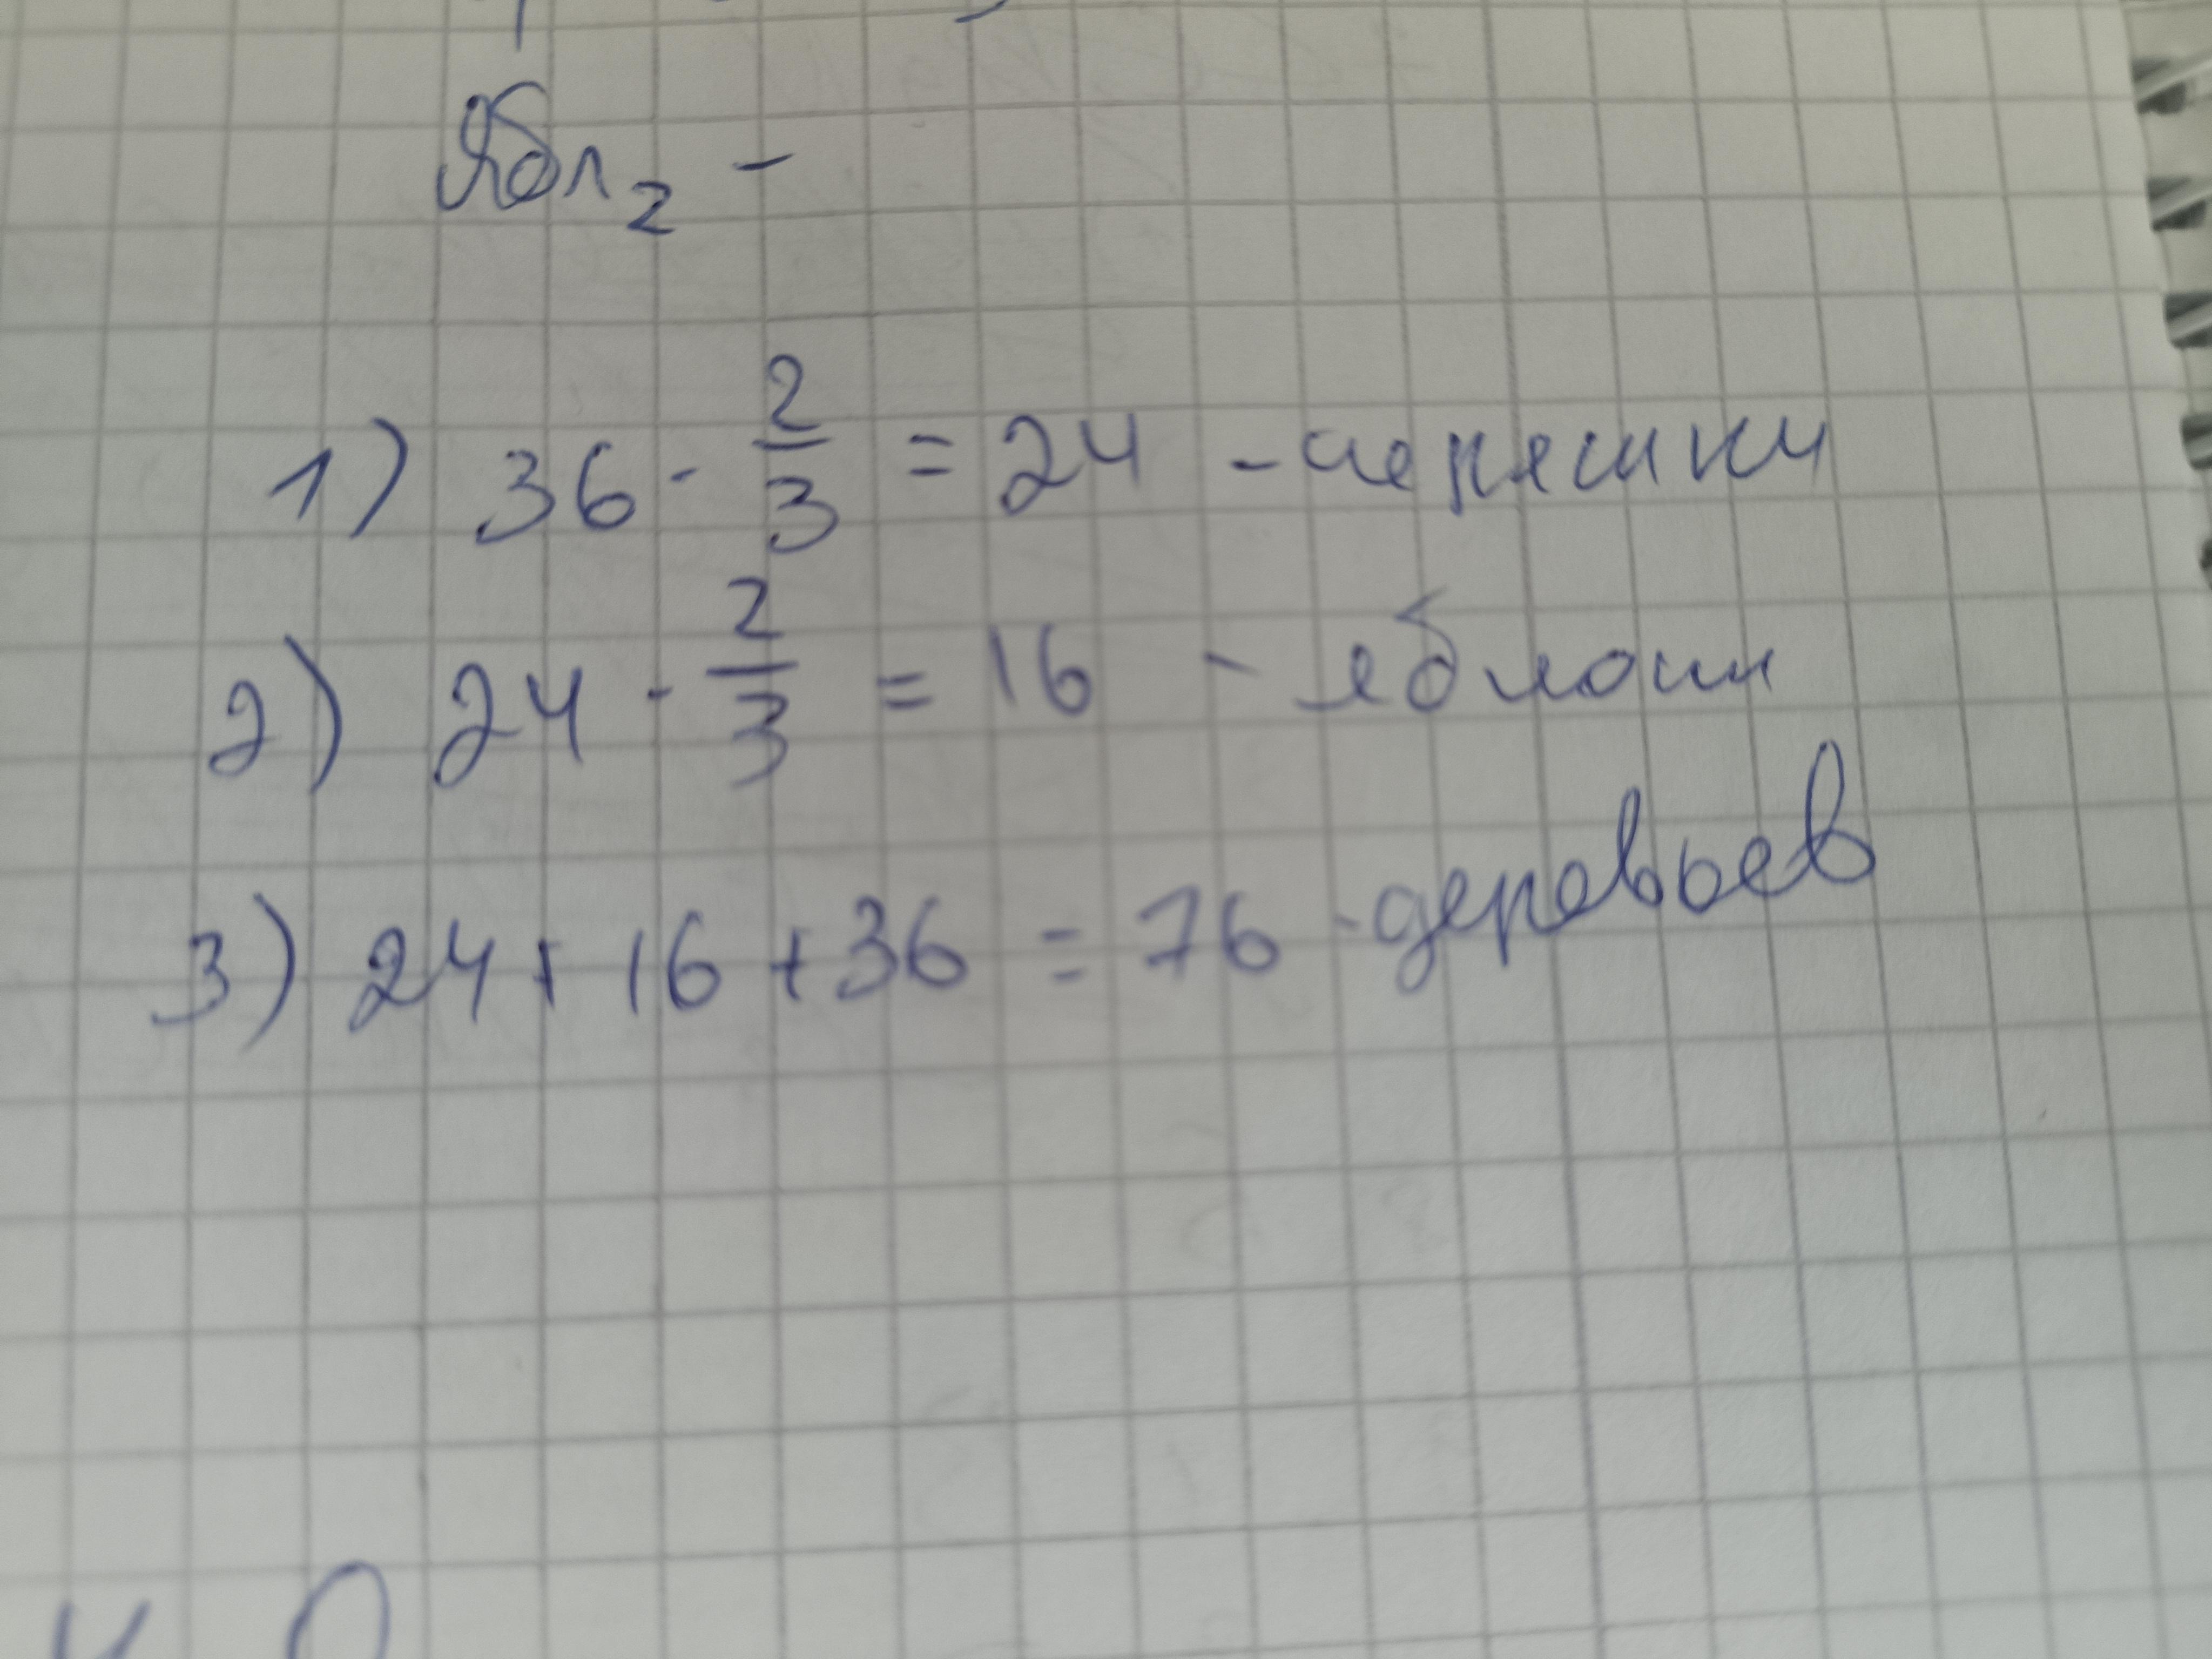 Ябл₂ -
1) 36 · 2/3 = 24 - черешни
2) 24 · 2/3 = 16 - яблони
3) 24 + 16 + 36 = 76 - деревьев